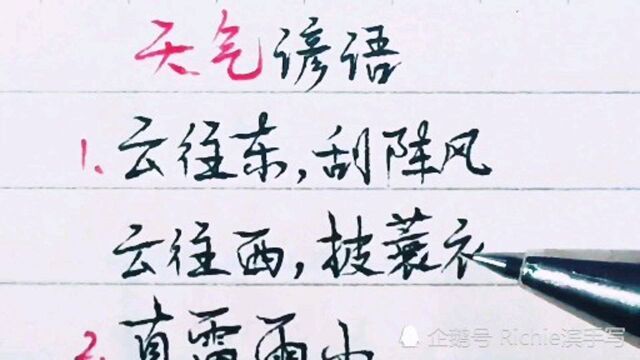 天气谚语
1. 云往东,刮阵风
云往西,披蓑衣
2. 直雷雨小
企鹅号 Richie滨手写